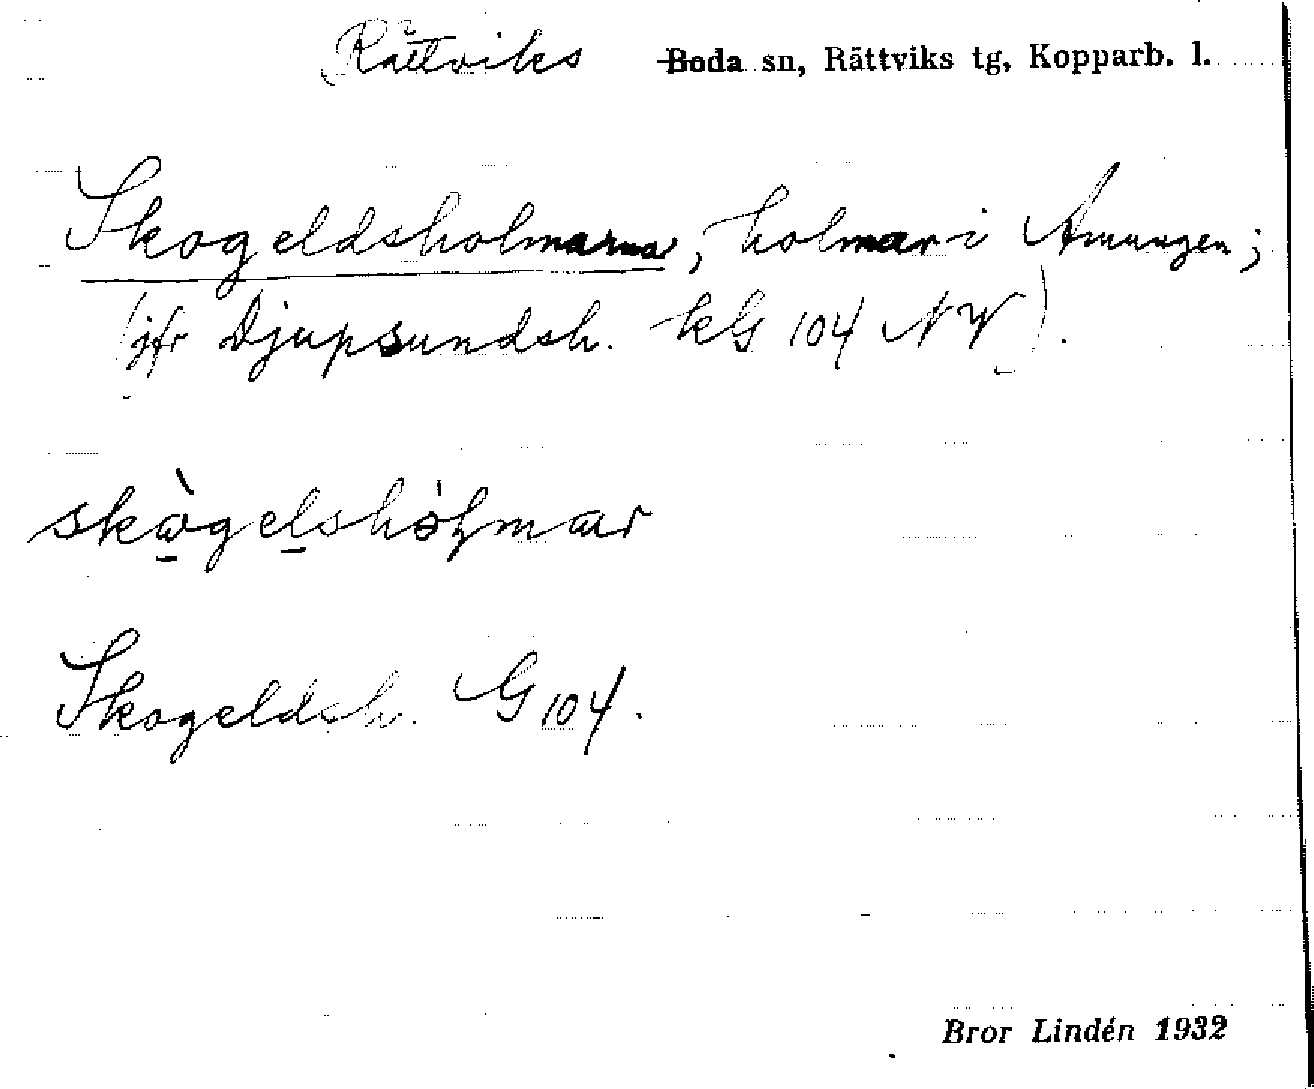 Rättviks Boda sn, Rättviks tg, Kopparb. l.
Skogeldsholmarna, holmar i Amungen;
(jfr Djupsundsh. kG 104 NV).
skògelshólmar
Skogeldsh. G 104.
Bror Lindén 1932